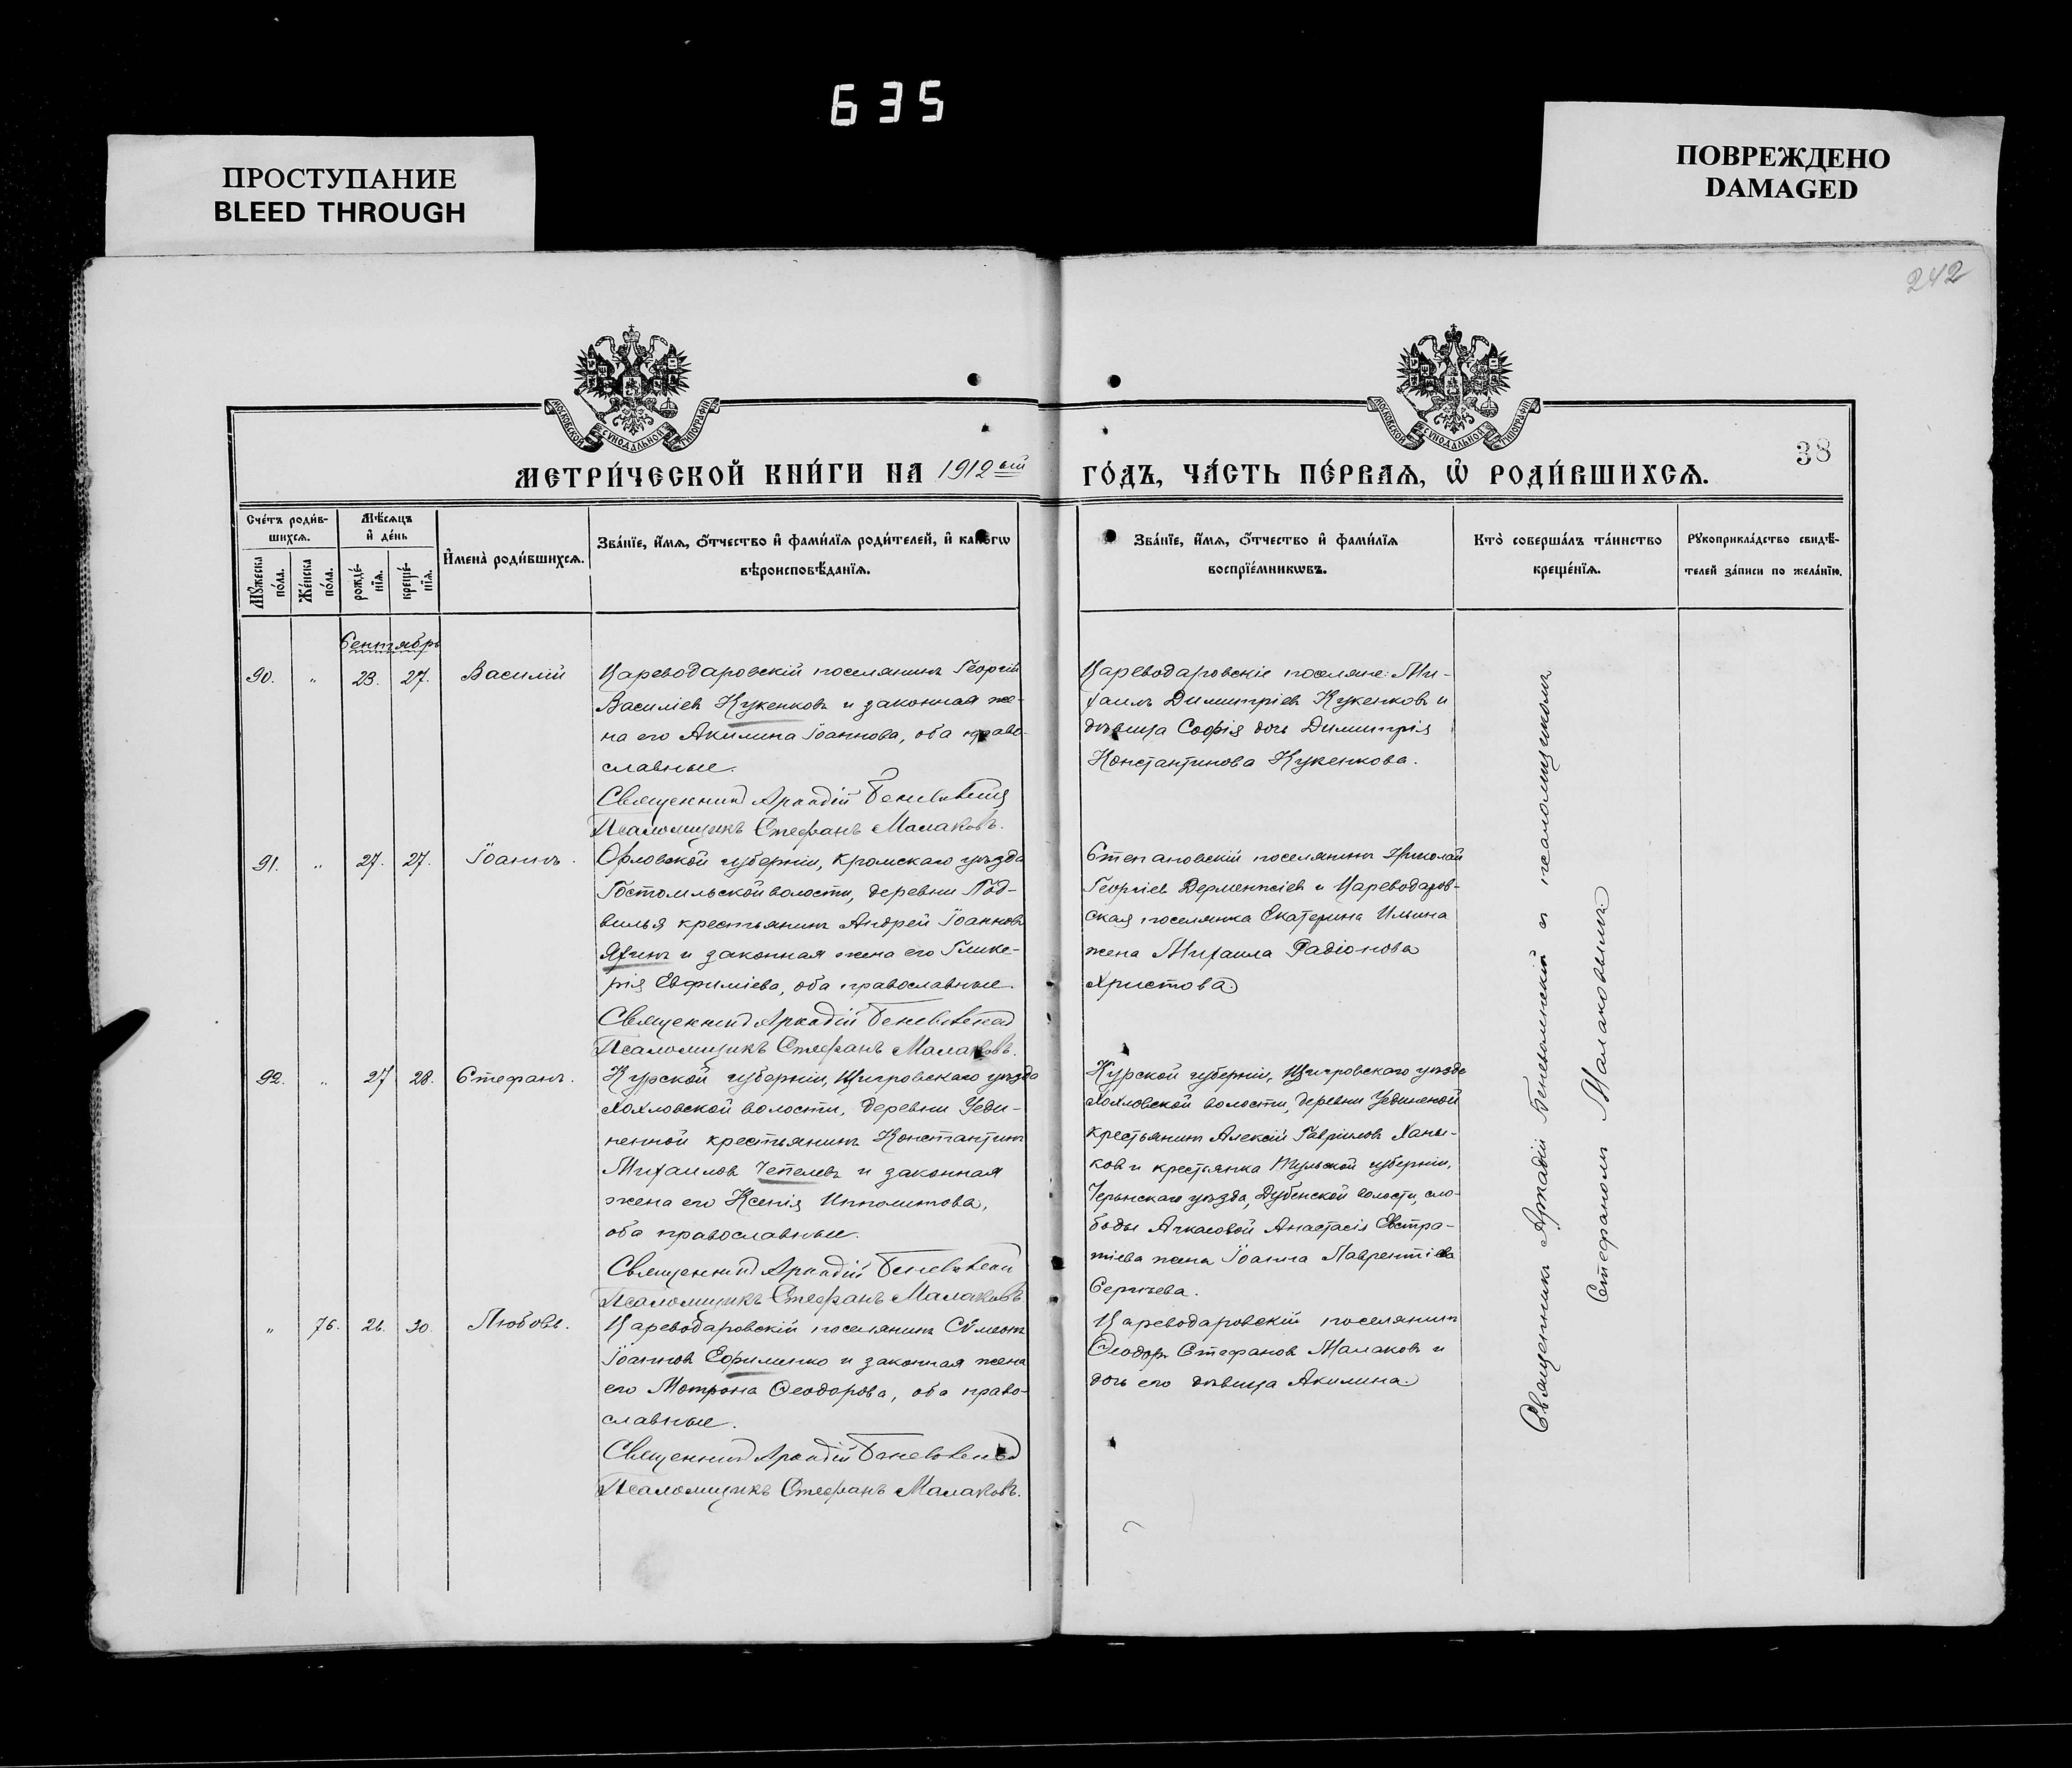 635
ПРОСТУПАНИЕ
BLEED THROUGH
ПОВРЕЖДЕНО
DAMAGED
242
38
МОСКОВСКОЙ СѴНОДАЛЬНОЙ ТИПОГРАФІИ
МОСКОВСКОЙ СѴНОДАЛЬНОЙ ТИПОГРАФІИ
МЕТРИ́ЧЕСКОЙ КНИ́ГИ НА 1912ый ГО́ДЪ, ЧА́СТЬ ПЕ́РВАЯ, Ѡ РОДИ́ВШИХСЯ.
Сче́тъ роди́в-
шихся.
Мꙋжеска по́ла.
Же́нска по́ла.
Мѣ́сяцъ
и҆ де́нь
рожде́-
нїя.
креще́-
нїя.
И҆мена̀ роди́вшихся.
Зва́нїе, и҆́мя, ѻ҆́тчество и҆ фами́лїя роди́телей, и҆ како́гѡ
вѣроисповѣ́данїя.
Зва́нїе, и҆́мя, ѻ҆́тчество и҆ фами́лїя
воспрїе́мникѡвъ.
Кто̀ соверша́лъ та́инство
креще́нїя.
Рꙋкоприкла́дство свидѣ́-
телей за́писи по жела́нїю.
Сентябрь
90. " 23. 27. Василій
Цареводаровскій поселянинъ Георгій
Василіев Кукенковъ и законная же-
на его Акилина Іоаннова, оба право-
славные.
Священникъ Аркадій Беневоленскій
Псаломщикъ Стефанъ Малаковъ.
Цареводаровскіе поселяне: Ми-
хаилъ Димитріевъ Кукенковъ и
дѣвица Софія дочь Димитрія
Константинова Кукенкова.
91. " 27. 27. Іоаннъ.
Орловской губерніи, Кромскаго уѣзда
Гостомльской волости, деревни Под-
вилья крестьянинъ Андрей Іоанновъ
Яхинъ и законная жена его Глике-
рія Евфиміева, оба православные.
Священникъ Аркадій Беневоленскій
Псаломщикъ Стефанъ Малаковъ.
Степановскій поселянинъ Николай
Георгіев Дерменжіев и Цареводаров-
ская поселянка Екатерина Ильина
жена Михаила Радіонова
Христова.
92. " 27 28. Стефанъ.
Курской губерніи, Щигровскаго уѣзда
Хохловской волости, деревни Уеди-
ненной крестьянинъ Константинъ
Михаилов Чепелевъ и законная
жена его Ксенія Ипполитова,
оба православные.
Священникъ Аркадій Беневоленскій
Псаломщикъ Стефанъ Малаковъ
Курской губерніи, Щигровскаго уѣзда
Хохловской волости, деревни Уединеной
крестьянинъ Алексій Гавріилов Ханы-
ков и крестьянка Тульской губерніи,
Чернскаго уѣзда, Дубенской волости, сло-
боды Ачкасовой Анастасія Евстра-
тіева жена Іоанна Лаврентіева
Сергѣева.
" 76. 26. 30. Любовь.
Цареводаровскій поселянинъ Сѵмеонъ
Іоаннов Ефименко и законная жена
его Мотрона Ѳеодорова, оба право-
славные.
Священникъ Аркадій Беневоленскій
Псаломщикъ Стефанъ Малаковъ.
Цареводаровскій поселянинъ
Ѳеодоръ Стефанов Малаковъ и
дочь его дѣвица Акилина.
Священникъ Аркадій Беневоленскій и псаломщикомъ
Стефаномъ Малаковымъ